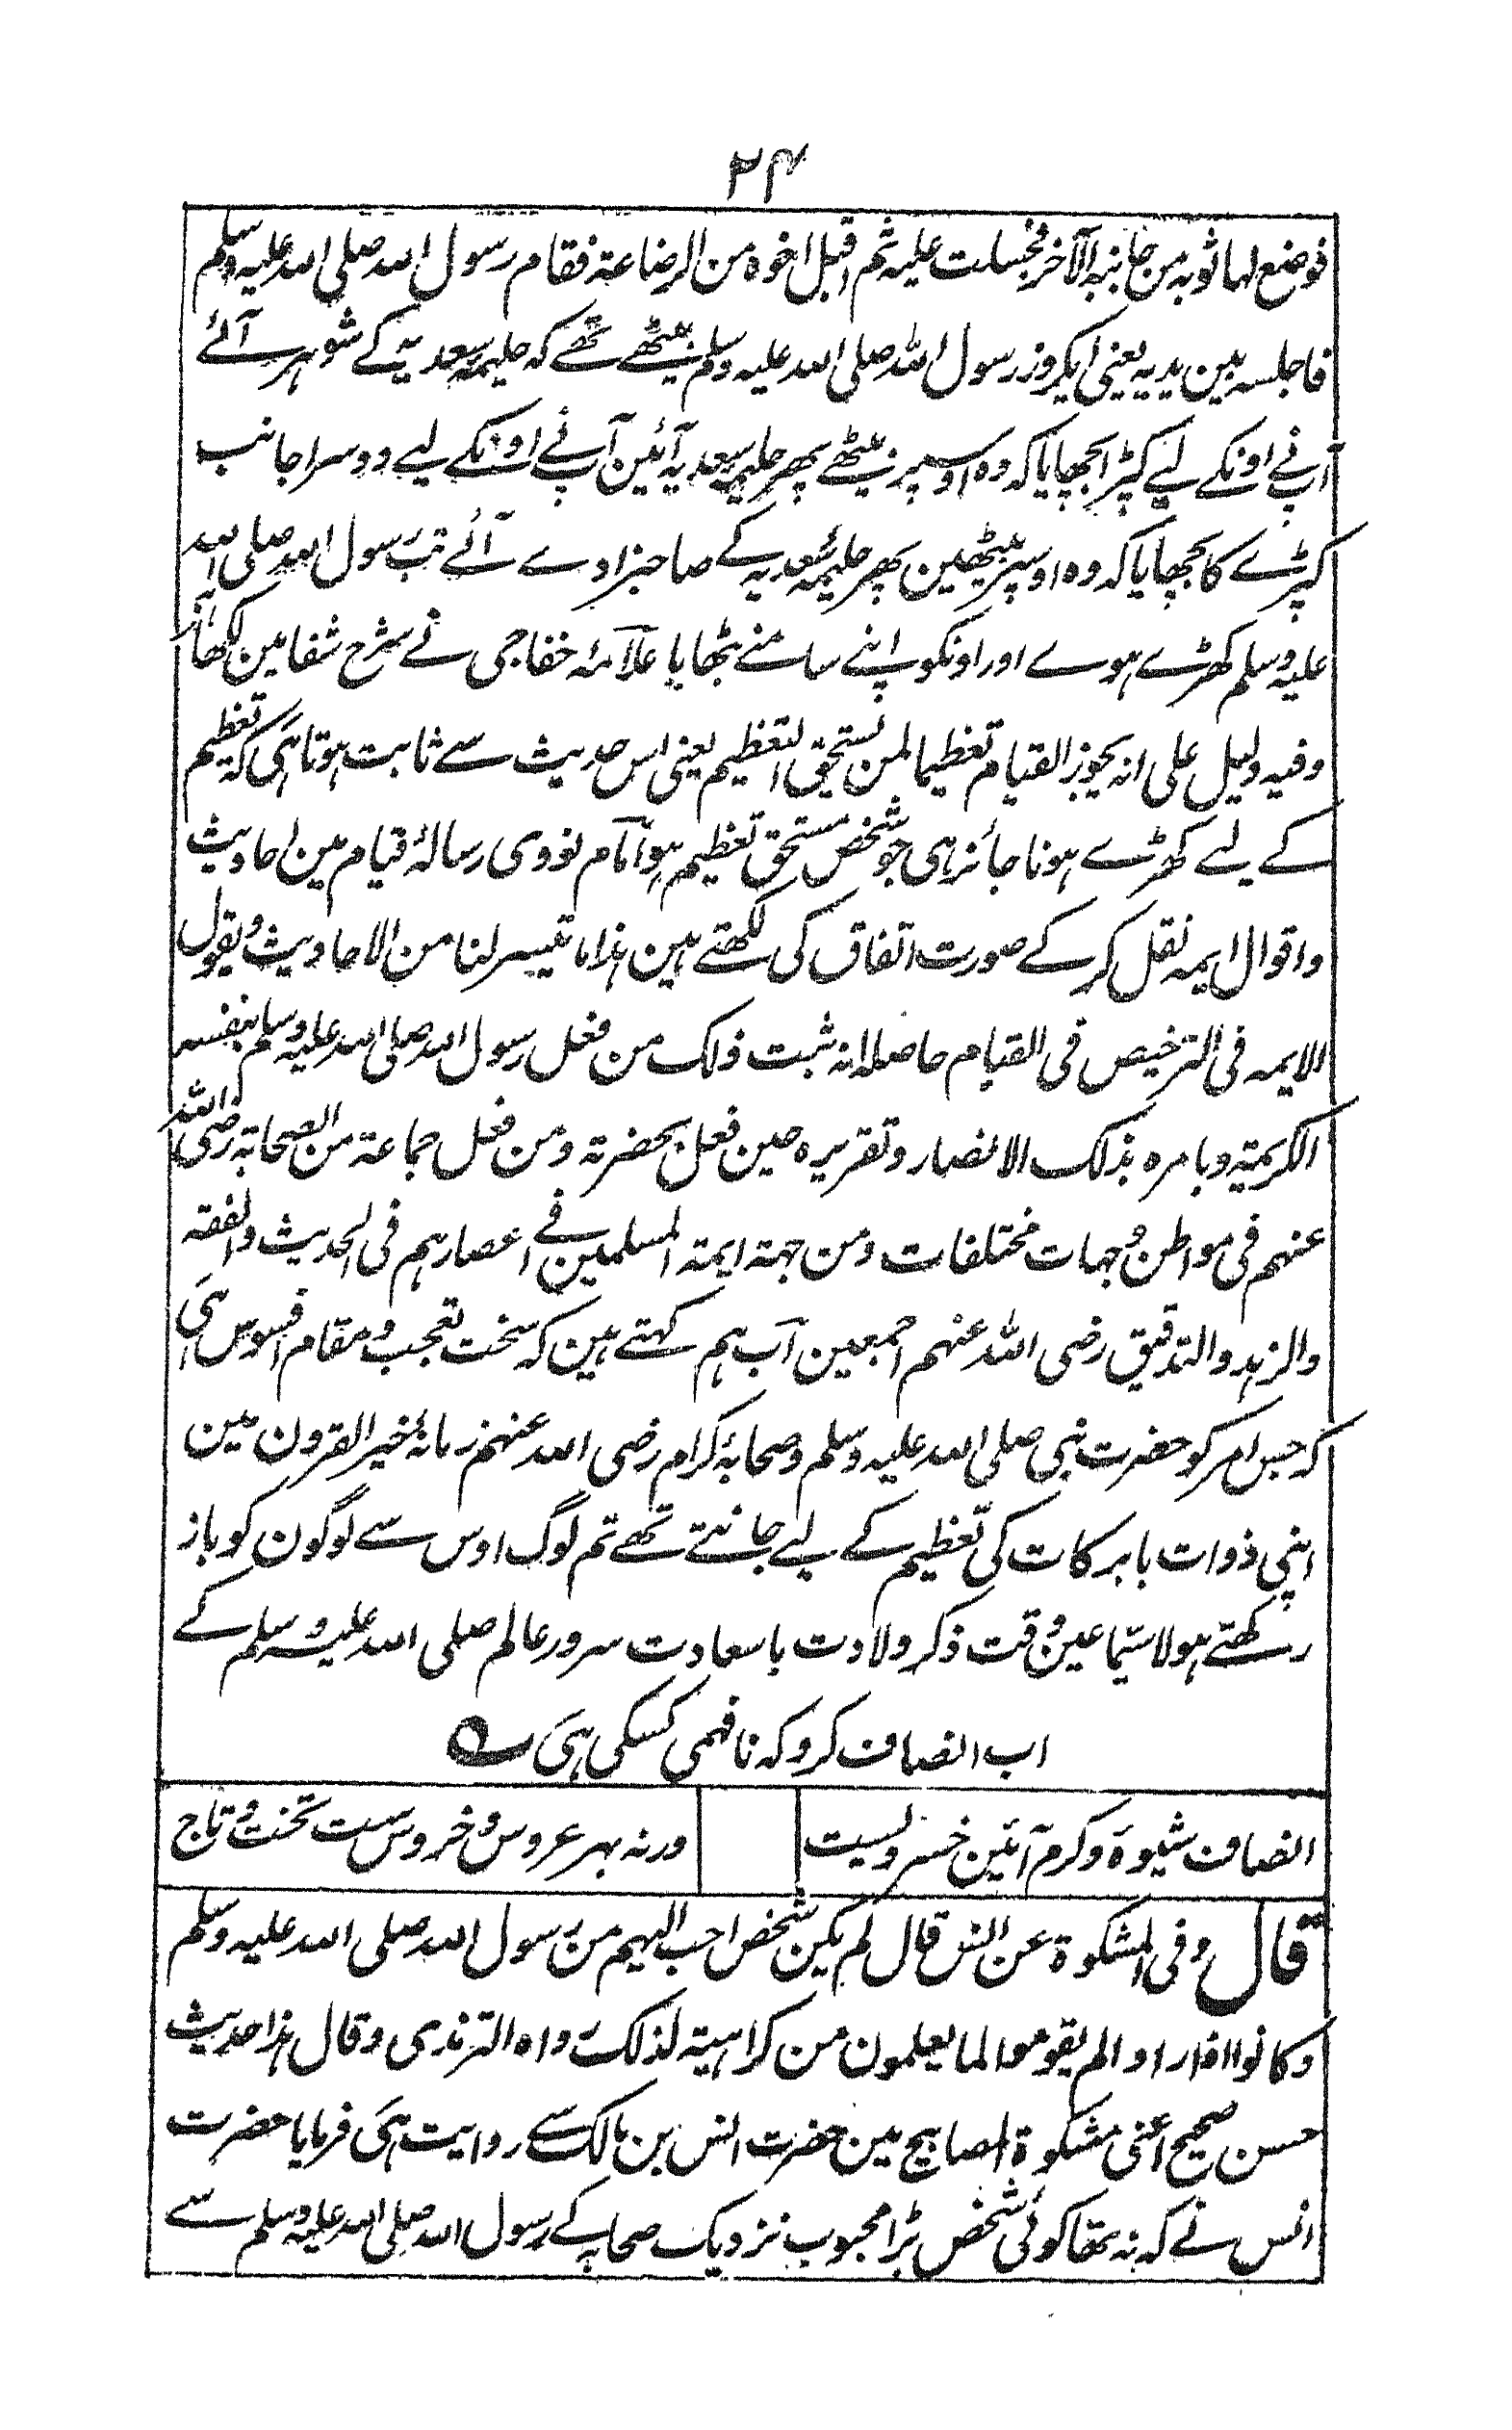 ۲۴
فوضع لها ثوبه من جانبه الآخر فجلست علیه ثم اقبل اخوه من الرضاعة فقام رسول الله صلی الله علیه وسلم
فاجلسه بین یدیه یعنی ایکروز رسول الله صلی الله علیه وسلم بیٹھے تھے کہ حلیمہ سعدیہ کے شوہر آئے
آپ نے اونکے لیے کپڑا بچھایا کہ وہ اوسپر بیٹھے پھر حلیمہ سعدیہ آئین آپ نے اونکے لیے دوسرا جانب
کپڑے کا بچھایا کہ وہ اوسپر بیٹھین پھر حلیمہ سعدیہ کے صاحبزادے آئے تب رسول الله صلی الله
علیه وسلم کھڑے ہوے اور اونکو اپنے سامنے بٹھایا علامۂ خفاجی نے شرح شفا مین لکھا ہے
وفیه دلیل علی انه یجوز القیام تعظیما لمن یستحق التعظیم یعنی اس حدیث سے ثابت ہوتا ہی کہ تعظیم
کے لیے کھڑے ہونا جائز ہی جو شخص مستحق تعظیم ہو امام نووی رسالۂ قیام مین احادیث
واقوال ایمہ نقل کر کے صورت اتفاق کی لکھتے ہین هذا ما تیسر لنا من الاحادیث ویقول
الایمه فی الترخیص فی القیام حاصله انه ثبت ذلک من فعل رسول الله صلی الله علیه وسلم بنفسه
الکریمة وبامره بذلک الانصار وتقریره حین فعل بحضرته ومن فعل جماعة من الصحابة رضی الله
عنهم فی مواطن وجهات مختلفات ومن جهة ایمة المسلمین فی اعصارهم فی الحدیث والفقه
والزهد والتدقیق رضی الله عنهم اجمعین اب ہم کہتے ہین کہ سخت تعجب و مقام افسوس ہی
کہ جس امر کو حضرت نبی صلی الله علیه وسلم وصحابۂ کرام رضی الله عنهم زمانۂ خیر القرون مین
اپنی ذوات بابرکات کی تعظیم کے لیے جانتے تھے تم لوگ اوس سے لوگون کو باز
رکھتے ہو لاسیما عین وقت ذکر ولادت باسعادت سرور عالم صلی الله علیه وسلم کے
اب انصاف کرو کہ نافہمی کسکی ہی
انصاف شیوۀ وکرم آئین خسرویست ورنه بهر عروس وخروس ست تخت وتاج
قال وفی المشکوة عن انس قال لم یکن شخص احب الیهم من رسول الله صلی الله علیه وسلم
وکانوا اذا راوا لم یقوموا لما یعلمون من کراهیته لذلک رواه الترمذی وقال هذا حدیث
حسن صحیح اعنی مشکوة المصابیح مین حضرت انس بن مالک سے روایت ہی فرمایا حضرت
انس نے کہ نہ تھا کوئی شخص بڑا محبوب نزدیک صحابہ کے رسول الله صلی الله علیه وسلم سے